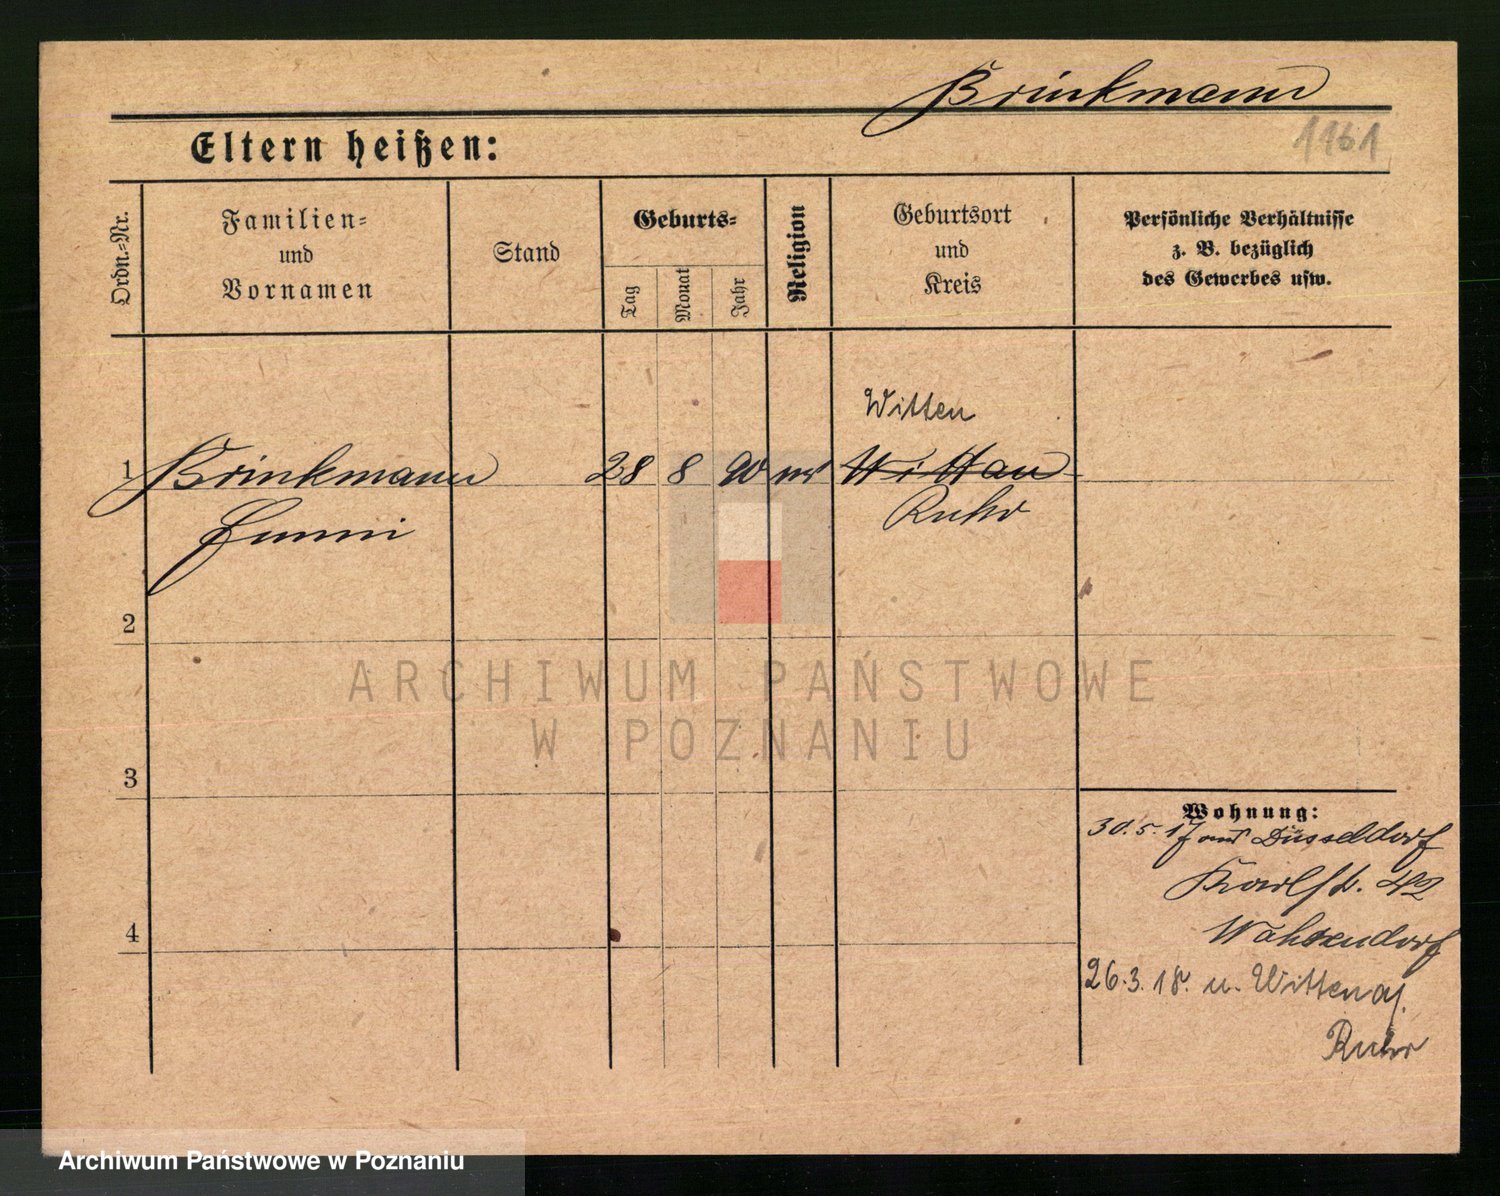 Brinkmann
1161
Eltern heißen:
Ordn.=Nr.
Familien=
und
Vornamen
Stand
Geburts=
Tag
Monat
Jahr
Religion
Geburtsort
und
Kreis
Persönliche Verhältnisse
z. B. bezüglich
des Gewerbes usw.
Witten
1 Brinkmann 28 8 90 Wittau
Ruhr
2
3
4
Wohnung:
30.5.17 aus Düsseldorf
Karlstr. 42
26.3.18. n. Witten a/.
Ruhr
ARCHIWUM PAŃSTWOWE
W POZNANIU
Archiwum Państwowe w Poznaniu